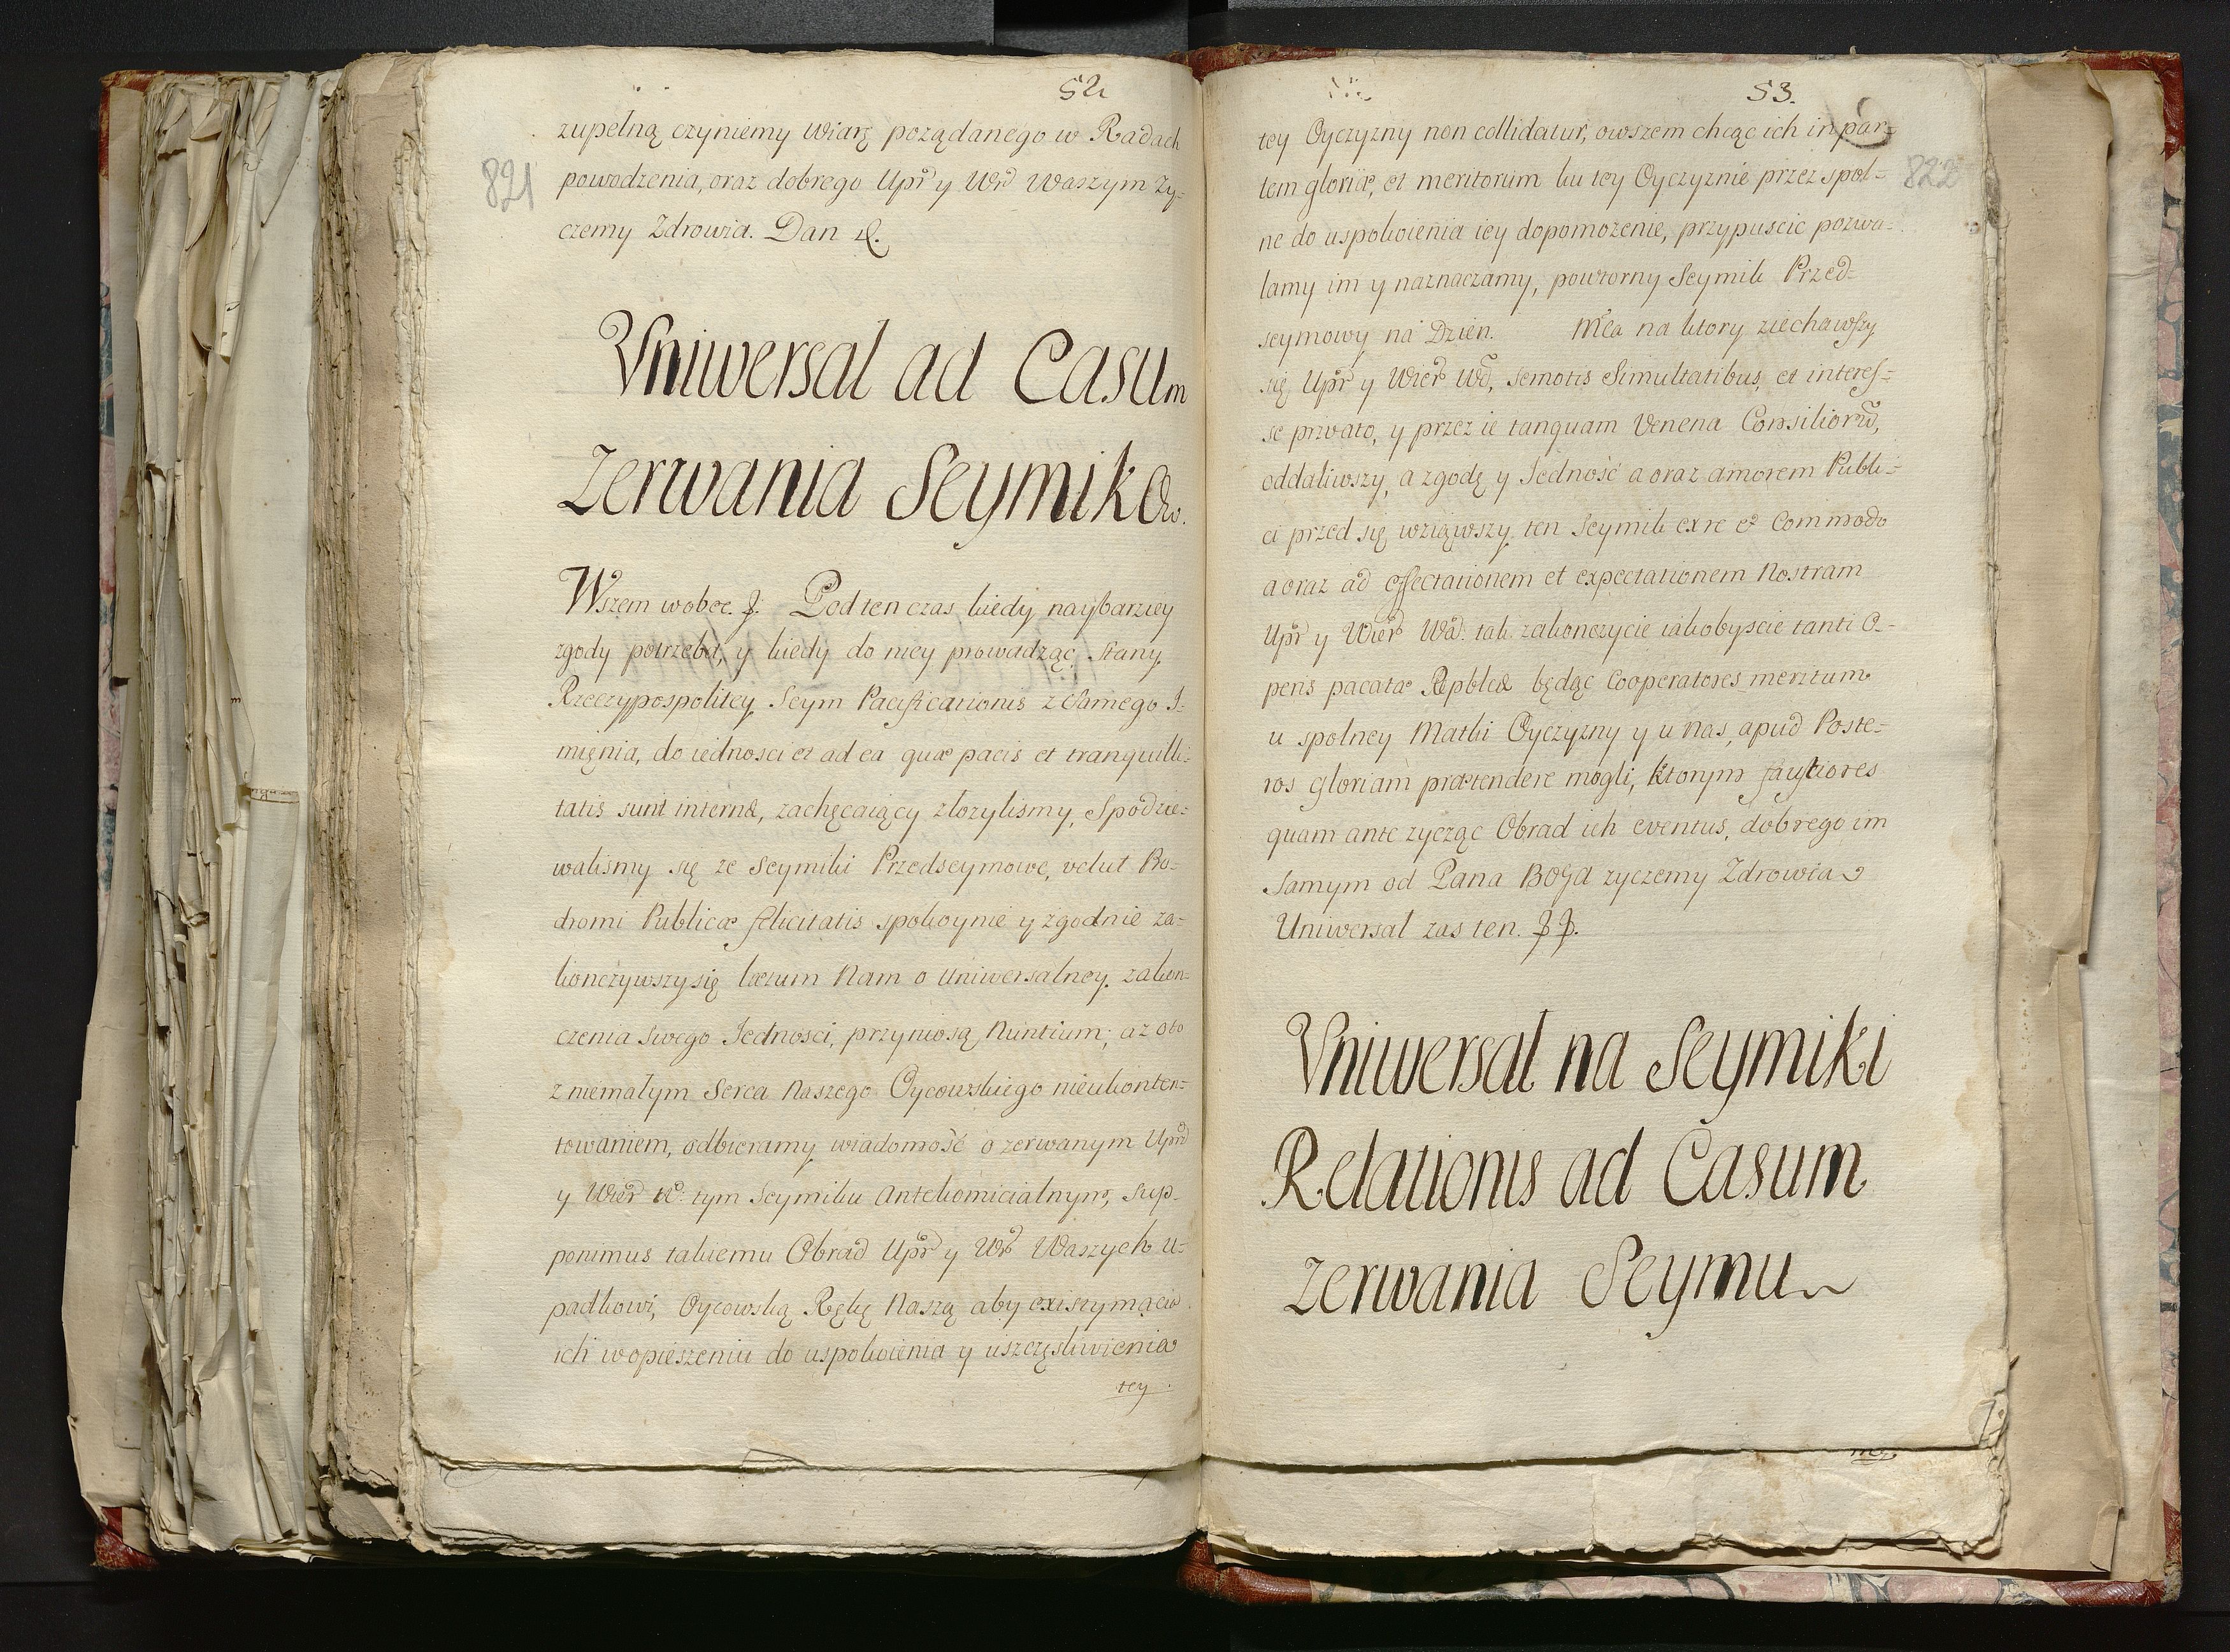 52
821
zupełną czyniemy wiarę pożądanego w Radach
powodzenia, oraz dobrego Upr y Wr Waszym ży-
czemy Zdrowia. Dan &.
Vniwersal ad Casum
zerwania Seymikow.
Wszem wobec. &. Pod ten czas kiedy naybarziey
zgody potrzeba, y kiedy do niey prowadząc Stany
Rzeczypospolitey Seym Pacificationis z Samego I-
mięnia, do iednosci et ad ea quæ pacis et tranquilli-
tatis sunt internæ, zachęcaiący złozylismy, Spodzie-
walismy się ze Seymiki Przedseymowe, velut Pro-
dromi Publicæ felicitatis spokoynie y zgodnie za-
konczywszy się lætum Nam o uniwersalney zakon-
czenia Swego Jednosci, przyniosą Nuntium; az oto
z niemałym Serca Naszego Oycowskiego nieukonten-
towaniem, odbieramy wiadomość o zerwanym Uprr
y Wier W: tym Seymiku Antekomicialnym, Sup-
ponimus takiemu Obrad Upr y Wr Waszych u-
padkowi, Oycowską Rękę Naszą aby
ich w opieszeniu do uspokoienia y uszczęsliwienia
tey
53.
822
tey Oyczyzny non collidatur, owszem chcąc ich in par-
tem gloriæ, et meritorum ku tey Oyczyznie przez spol-
ne do uspokoienia iey dopomozenie, przypuscic pozwa-
lamy im y naznaczamy, powtorny Seymik Przed-
seymowy na Dzien. Mca na ktory ziechawszy
się Upr y Wier Wd, semotis Simultatibus, et interes-
se privato, y przez ie tanquam Venena Consiliorũ,
oddaliwszy, a zgodę y Jedność a oraz amorem Publi-
ci przed się wziąwszy, ten Seymik ex re et Commodo
a oraz ad effectationem et expectationem Nostram
Upr y Wier Wd: tak zakonczycie iakobyscie tanti O-
peris pacatæ Rpblcæ będąc Cooperatores meritum
u spolney Matki Oyczyzny y u Nas, apud Poste-
ros gloriam prætendere mogli, ktorym faustiores
quam ante zycząc Obrad ich eventus, dobrego im
samym od Pana BOGA zyczemy Zdrowia
Uniwersal zas ten. &&.
Vniwersal na Seymiki
Relationis ad Casum
zerwania Seymu